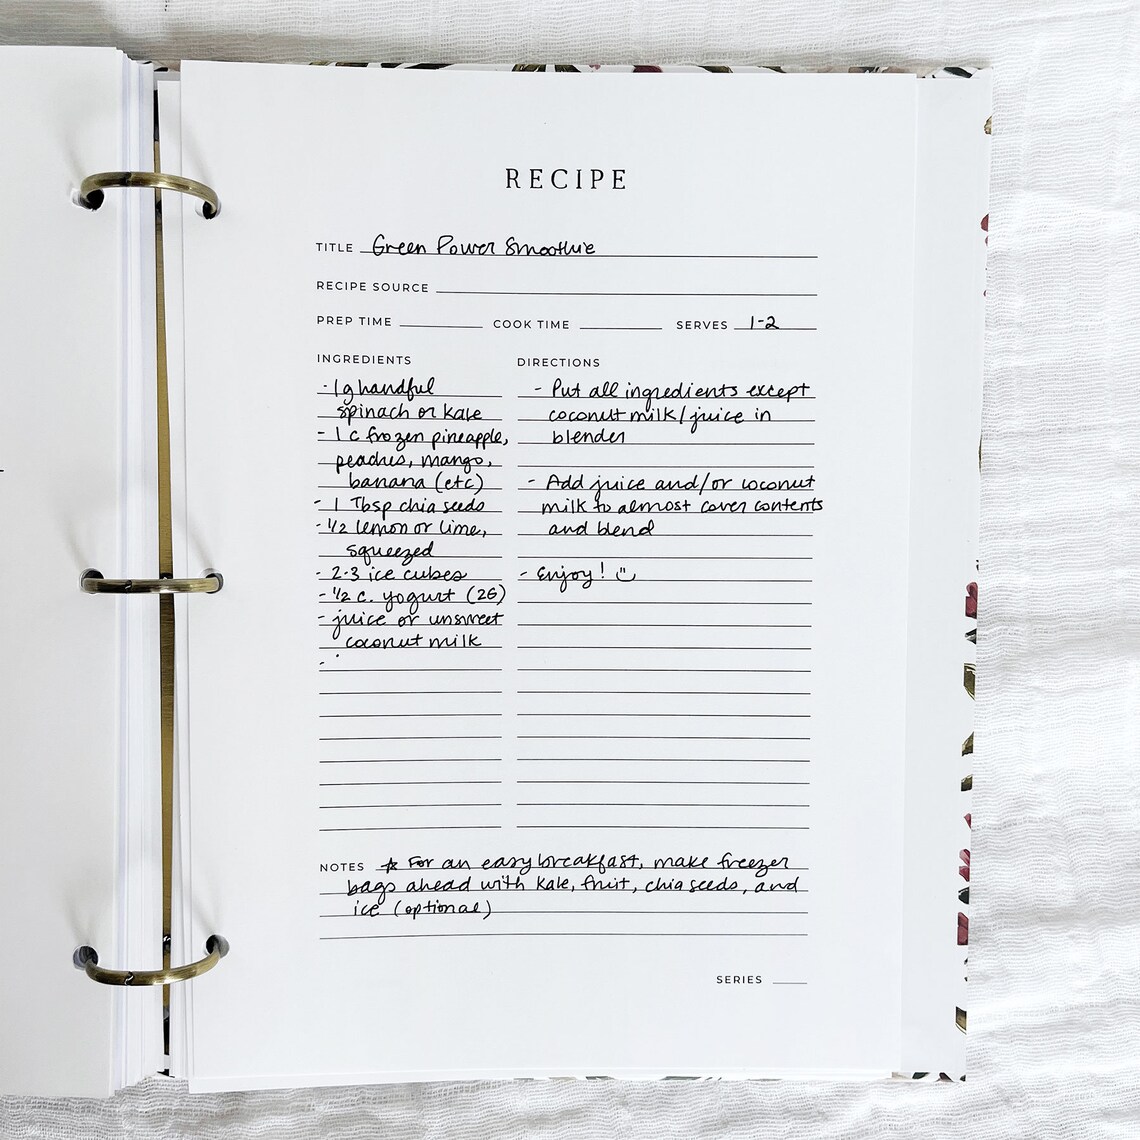 RECIPE
TITLE Green Power Smoothie
RECIPE SOURCE
PREP TIME COOK TIME SERVES 1-2
INGREDIENTS
- 1 g handful
spinach or kale
- 1 c frozen pineapple,
peaches, mango,
banana (etc)
- 1 Tbsp chia seeds
- 1/2 lemon or lime,
squeezed
- 2-3 ice cubes
- 1/2 c. yogurt (2G)
- juice or unsweet
coconut milk
-
DIRECTIONS
- Put all ingredients except
coconut milk/juice in
blender
- Add juice and/or coconut
milk to almost cover contents
and blend
- Enjoy! ☺
NOTES ☆ For an easy breakfast, make freezer
bags ahead with kale, fruit, chia seeds, and
ice (optional)
SERIES